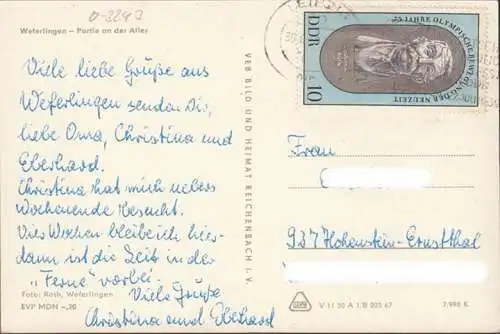 0-3243
Weferlingen – Partie an der Aller
Viele liebe Grüße aus
Weferlingen senden Dir,
liebe Oma, Christina und
Eberhard.
Christina hat mich übers
Wochenende besucht.
Vier Wochen bleibe ich hier-
dann ist die Zeit in der
„Ferne" vorbei.
Viele Grüße
Christina und Eberhard
Foto: Roth, Weferlingen
EVP MDN –,20
VEB BILD UND HEIMAT REICHENBACH I. V.
LEIPZIG
75 JAHRE OLYMPISCHE BEWEGUNG DER NEUZEIT
DDR
10
Frau
937 Hohenstein-Ernstthal
V 11 50 A 1/B 205 67
7/998 K